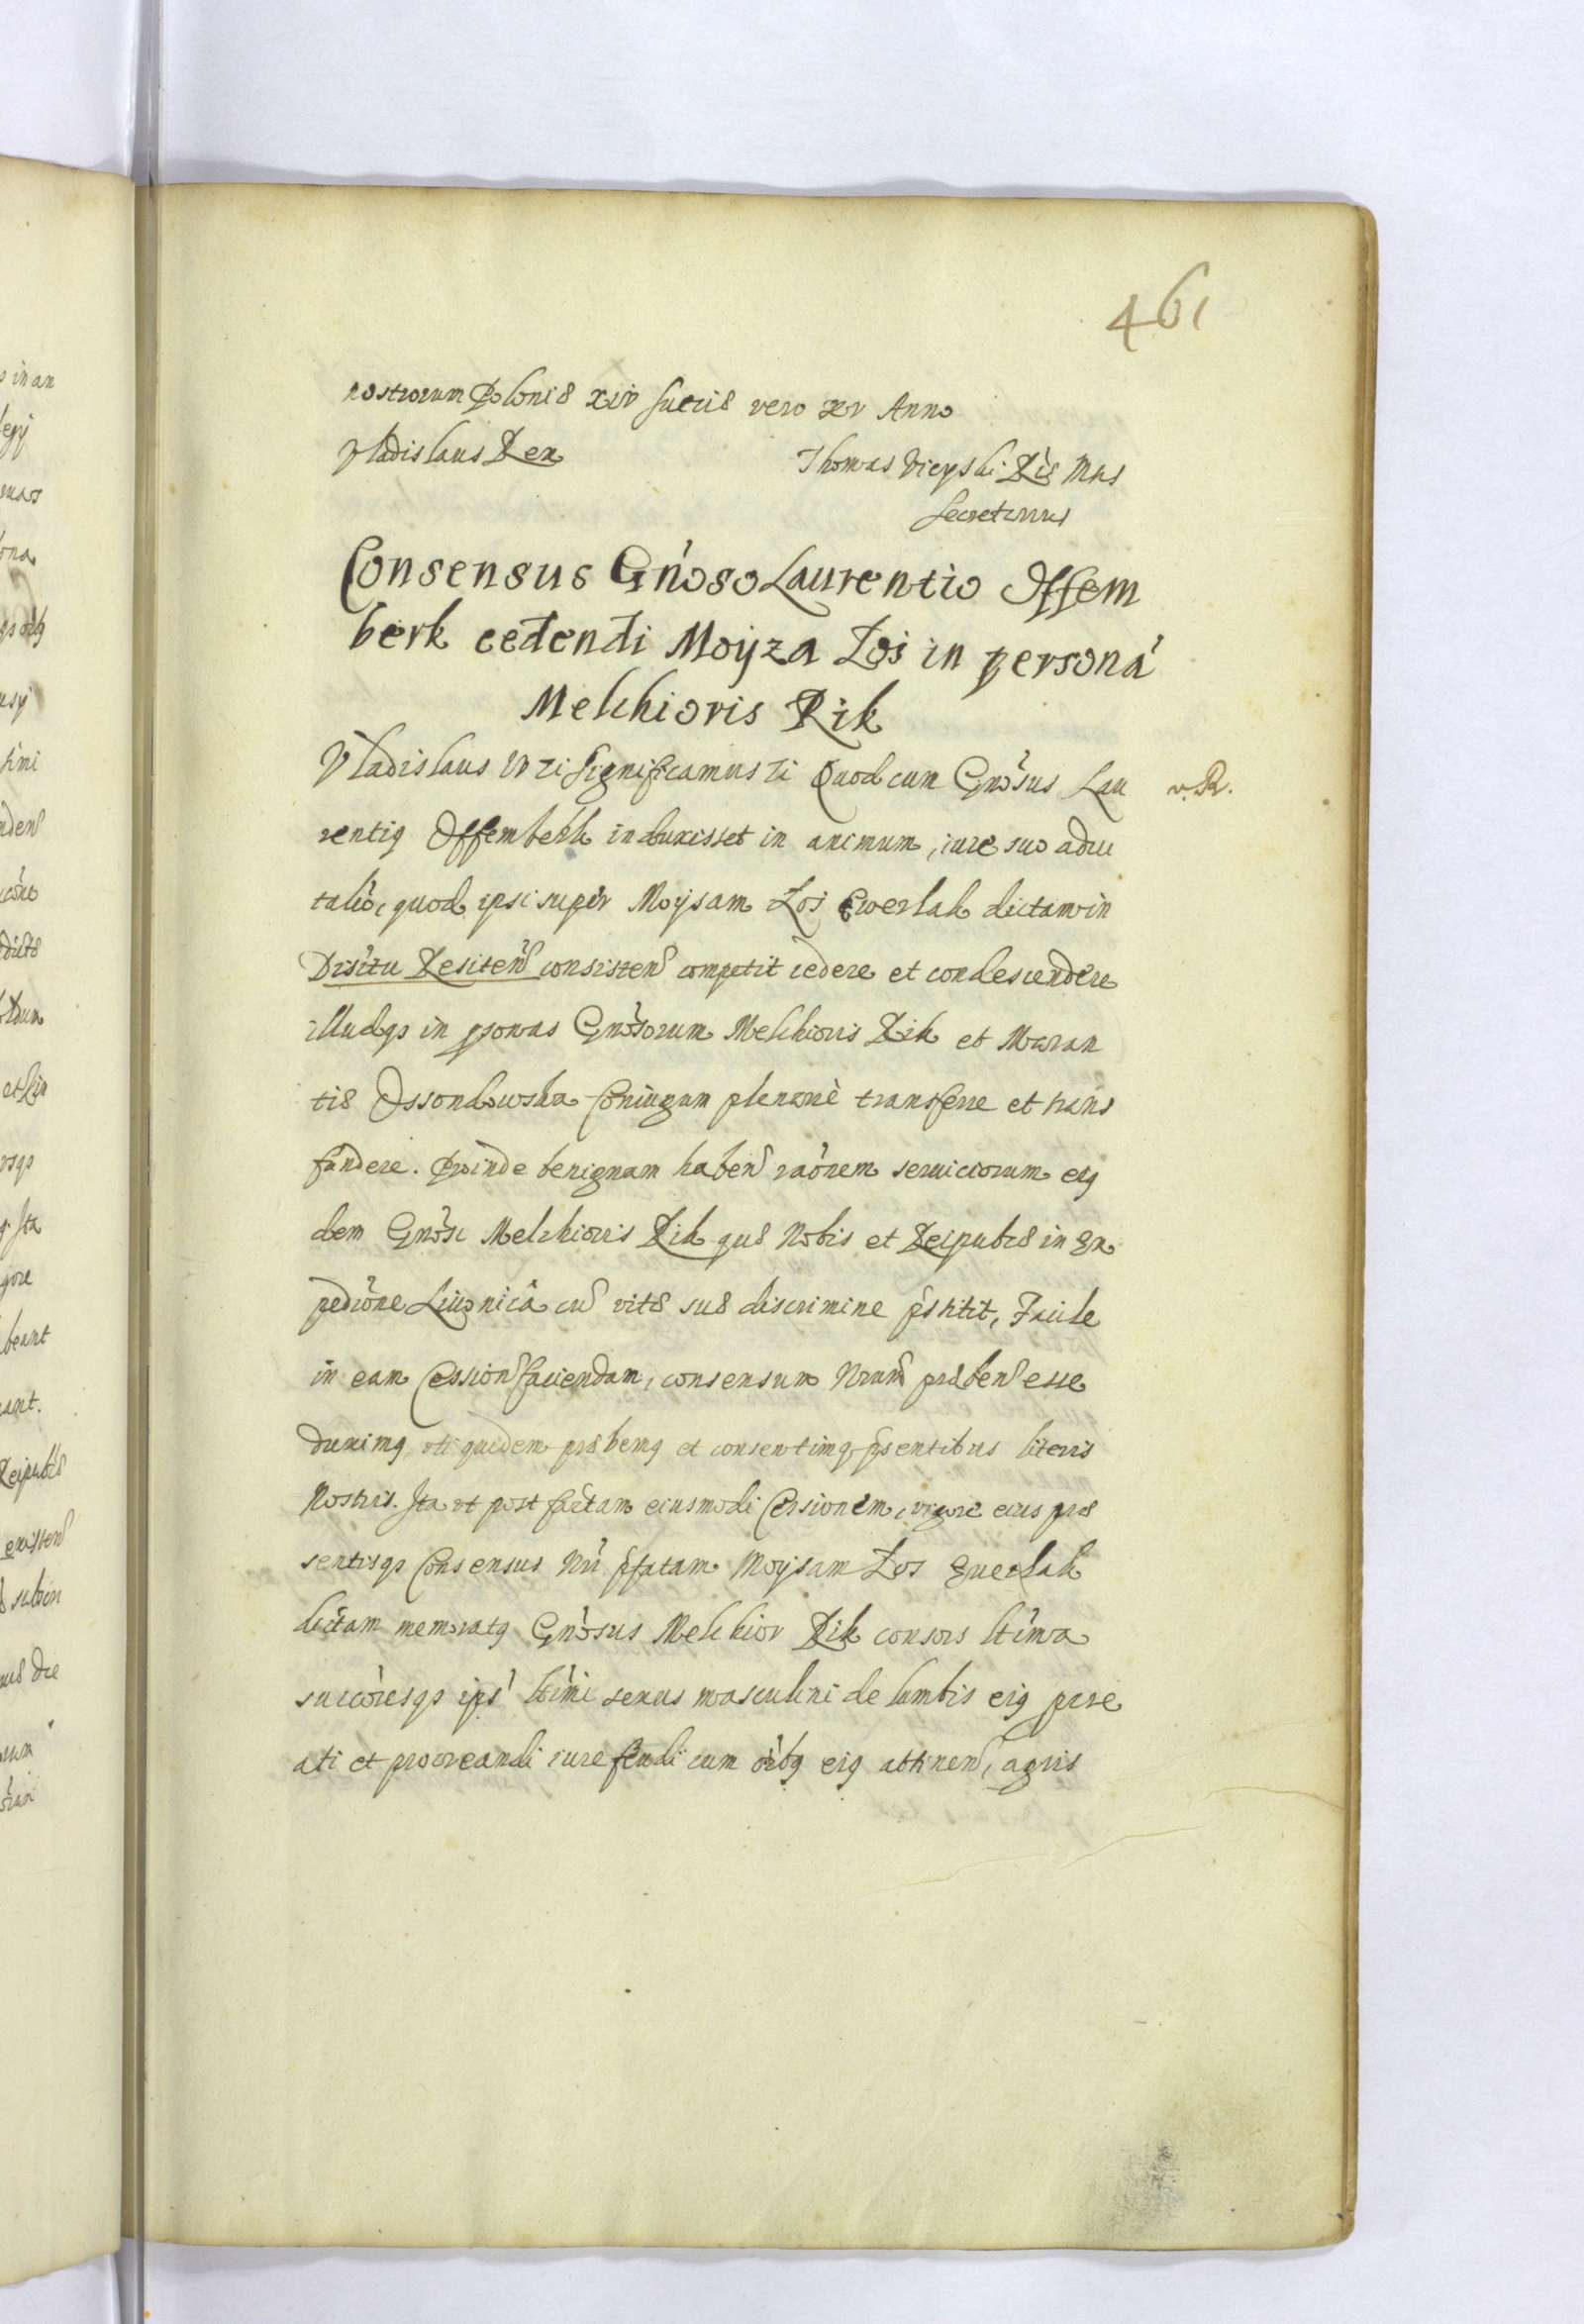 461
nostrorum Poloniæ xiv Sueciæ vero xv Anno
Vladislaus Rex Thomas Vieyski Ris Mtis
Secretarius
Consensus Gnoso Laurentio Offem
berk cedendi Moyza Zoj in personá
Melchioris Rik
Vladislaus IV Significamus Quod cum Gnosus Lau v. R.
rentiq Offemberk induxisset in animum, iure suo advi
talio, quod ipsi super Moysam Zoj Ewerlak dictam in
Drictu Resiten consisten competit cedere et condescendere
illudqs in psonas Gnosorum Melchioris Rik et Maran
tis Ossondowska Coniugum plenarie transferre et trans
fundere. Proinde benignam haben raonem serviciorum eiq
dem Gnosi Melchioris Rik quæ Nobis et Reipublæ in Ex
pedione Livonicâ cu vitæ suæ discrimine pstitit, Facile
in eam Cession faciendam, consensum Nrum præben esse
duximq, uti quidem præbemq et consentimq psentibus literis
Nostris. Ita ut post factam eiusmodi Cessionem, vigore eius præ
sentisqs Consensus Nri pfatam Moysam Zoj Everlak
dictam memoratq Gnosus Melchior Rik consors ltima
succoresqs ips ltimi sexus masculini de lumbis eiq pcre
ati et procreandi iure feudi cum oibq eiq attinen, agris